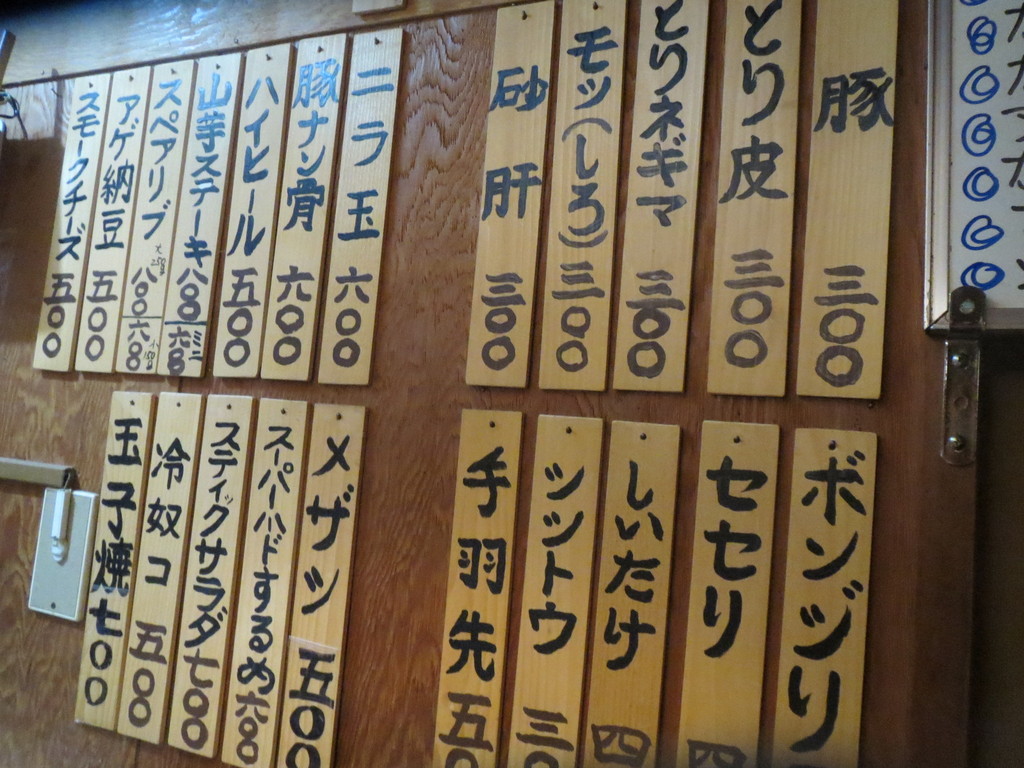 豚 三〇〇
とり皮 三〇〇
とりネギマ 三〇〇
モツ(しろ) 三〇〇
砂肝 三〇〇
ニラ玉 六〇〇
豚ナン骨 六〇〇
ハイヒール 五〇〇
山芋ステーキ 八〇〇 ミニ六〇〇
スペアリブ 大 八〇〇 小 六〇〇
アゲ納豆 五〇〇
スモークチーズ 五〇〇
ボンヅリ
セセリ 四
しいたけ 四
シシトウ 三〇
手羽先 五〇
メザシ 五〇〇
スーパーハードするめ 六〇〇
スティックサラダ 七〇〇
冷奴コ 五〇〇
玉子焼 七〇〇